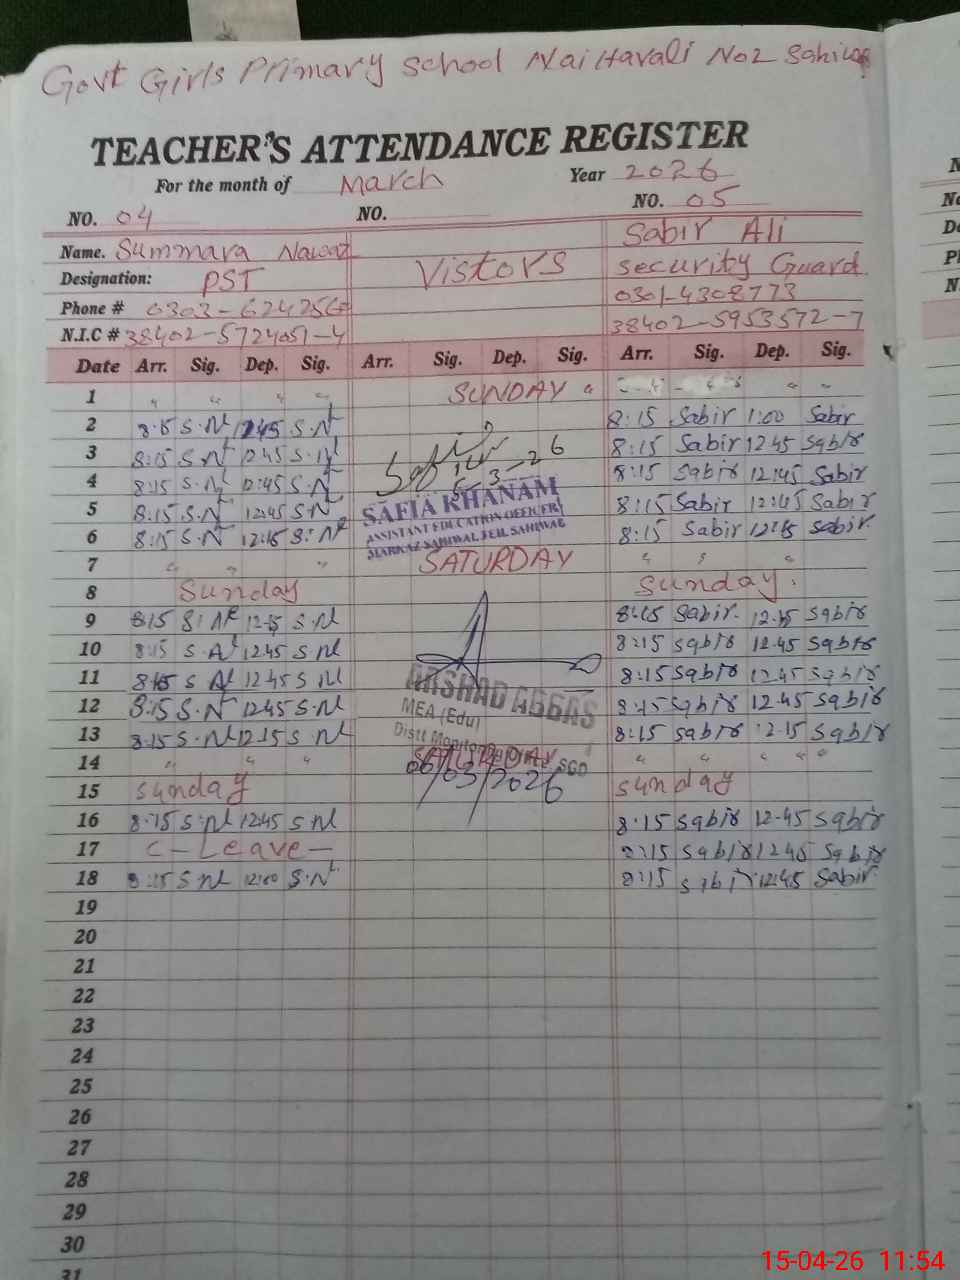 Govt Girls Primary School Nai Havali No2 Sahiwal
TEACHER'S ATTENDANCE REGISTER
For the month of March Year 2026
NO. 04 NO. NO. 05
Name. Summara Nawaz Sabir Ali
Designation: PST Vistors Security Guard
Phone # 0303-6242568 0301-4308773
N.I.C # 38402-5724051-4 38402-5953572-7
Date Arr. Sig. Dep. Sig. Arr. Sig. Dep. Sig. Arr. Sig. Dep. Sig.
1 " " " " SUNDAY " " "
2 8:15 S.N 12:45 S.N 8:15 Sabir 1:00 Sabir
3 8:15 S.N 12:45 S.N 8:15 Sabir 12 45 Sabir
4 8:15 S.N 12:45 S.N 8:15 Sabir 12:45 Sabir
5 8:15 S.N 12:45 S.N 8:15 Sabir 12:45 Sabir
SAFIA KHANAM
ASSISTANT EDUCATION OFFICER
MARKAZ SAHIWAL TEH. SAHIWAL
6 8:15 S.N 12:15 S.N 8:15 Sabir 12:15 Sabir
7 " " " SATURDAY " " "
8 Sunday Sunday.
9 8:15 S.N 12:45 S.N 8:15 Sabir. 12.45 Sabir
10 8:15 S.N 12.45 S.N 8:15 Sabir 12.45 Sabir
11 8:15 S.N 12 45 S.N 8:15 Sabir 12.45 Sabir
ARSHAD ABBAS
MEA (Edu)
Distt Monitoring Office SGD
06/03/2026
12 8:15 S.N 12:45 S.N 8:15 Sabir 12.45 Sabir
13 8:15 S.N 12.15 S.N 8:15 Sabir 12.15 Sabir
14 " " " SATURDAY " " " "
15 Sunday Sunday
16 8:15 S.N 12:45 S.N 8:15 Sabir 12.45 Sabir
17 C-Leave- 8:15 Sabir 12 45 Sabir
18 8:15 S.N 12:00 S.N 8:15 Sabir 12:45 Sabir
19
20
21
22
23
24
25
26
27
28
29
30
31
15-04-26 11:54